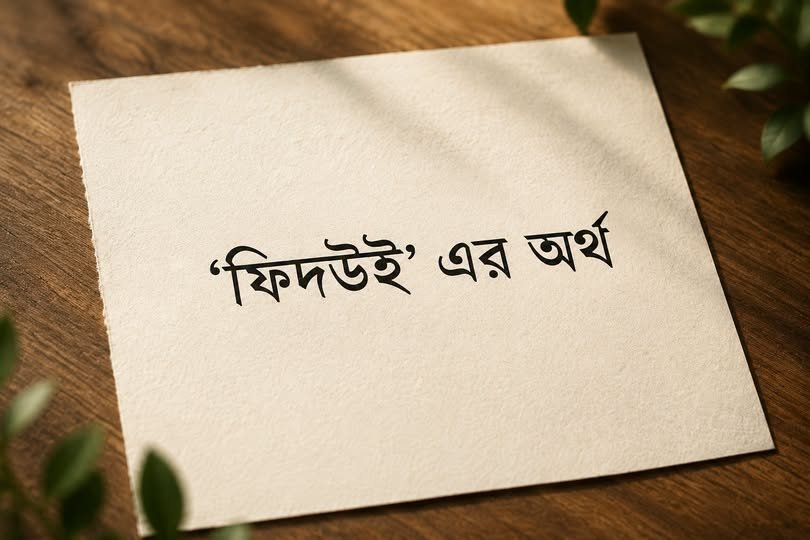 ‘ফিদউই’ এর অর্থ